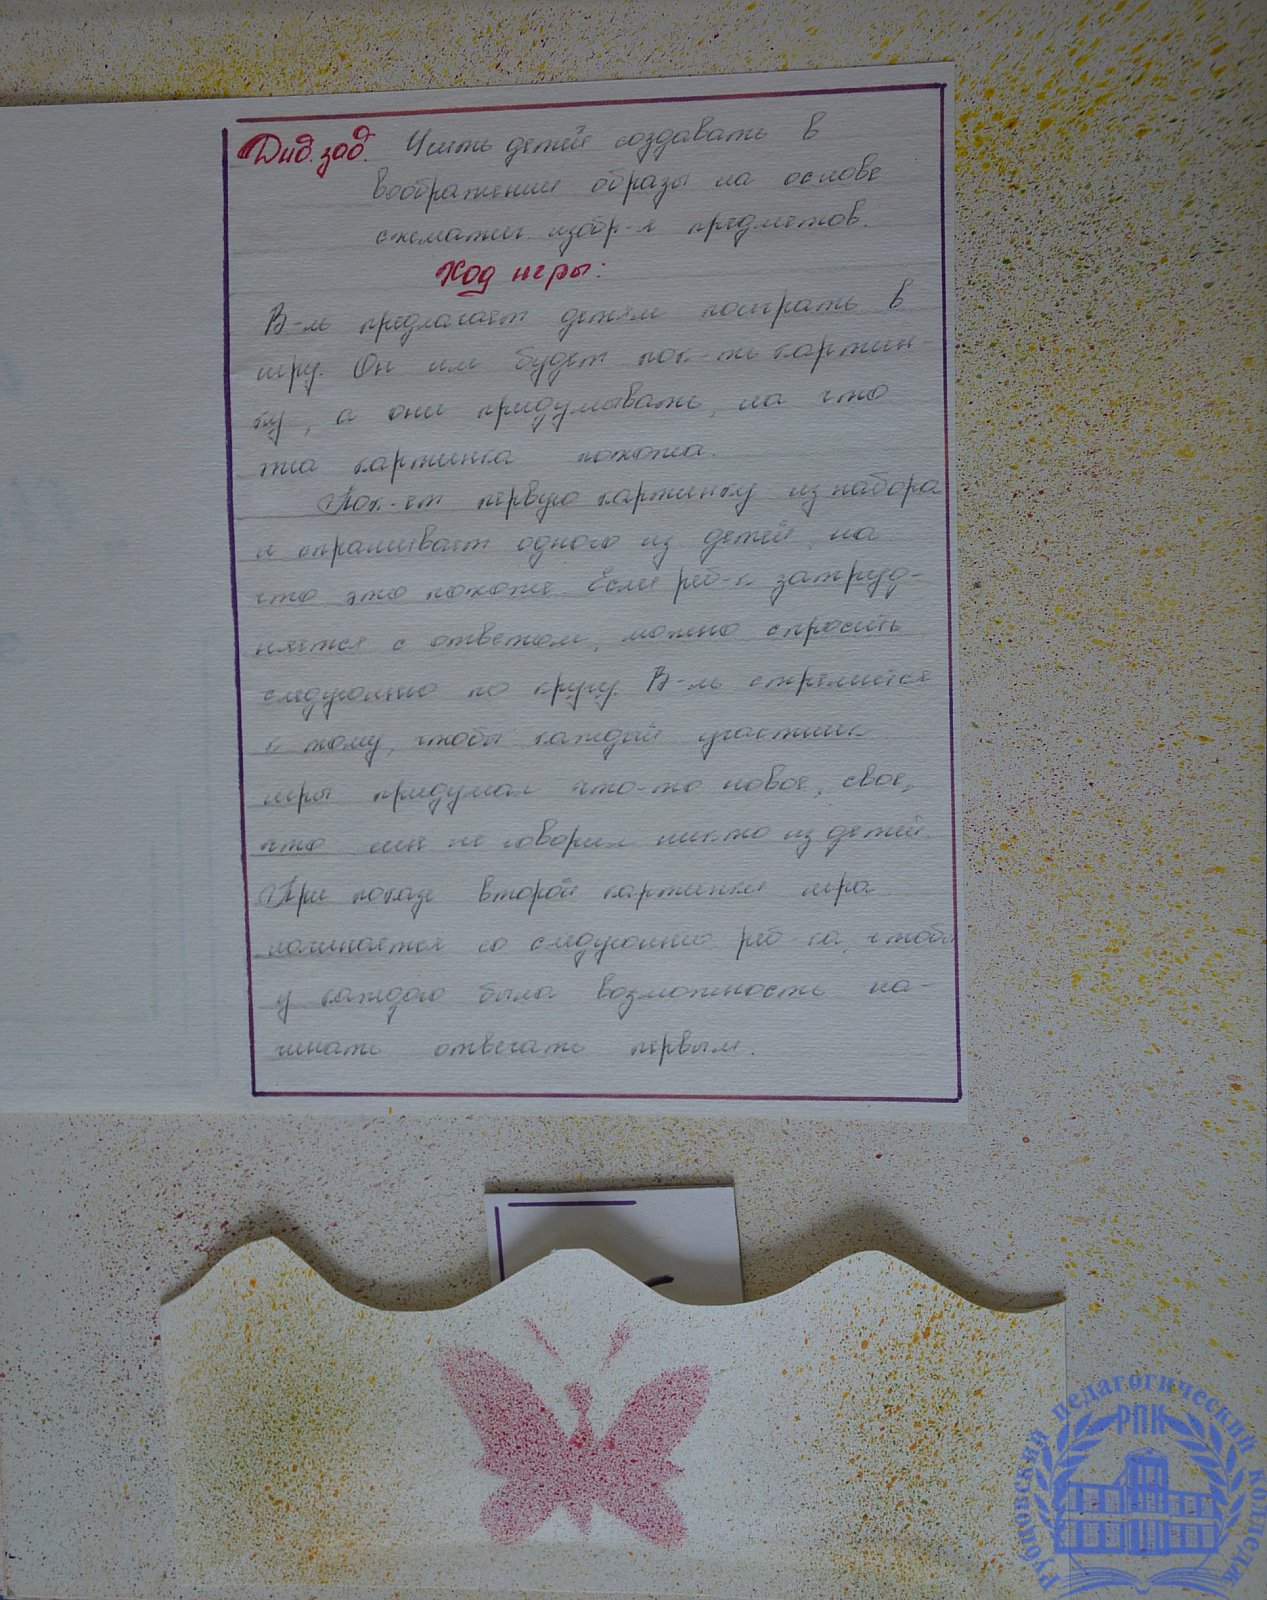 Дид. зад. Учить детей создавать в
воображении образы на основе
схематич. изобр-я предметов.
Ход игры:
В-ль предлагает детям поиграть в
игру. Он им будет пок-ть картин-
ку, а они придумывать, на что
эта картинка похожа.
Пок-ет первую картинку из набора
и спрашивает одного из детей, на
что это похоже. Если реб-к затруд-
няется с ответом, можно спросить
следующего по кругу. В-ль стремится
к тому, чтобы каждый участник
игры придумал что-то новое, свое,
что ещё не говорил никто из детей.
При показе второй картинки игра
начинается со следующего реб-ка, чтобы
у каждого была возможность на-
чинать отвечать первым.
Рубцовский педагогический колледж
РПК